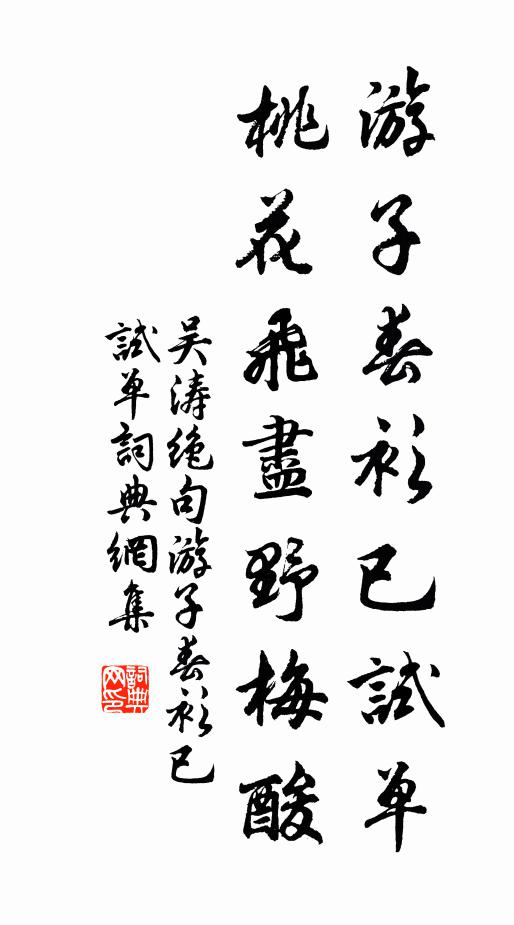 游子春衫已試单
桃花飛盡野梅酸
吴涛绝句游子春衫已
試单詞典網集
詞典网印